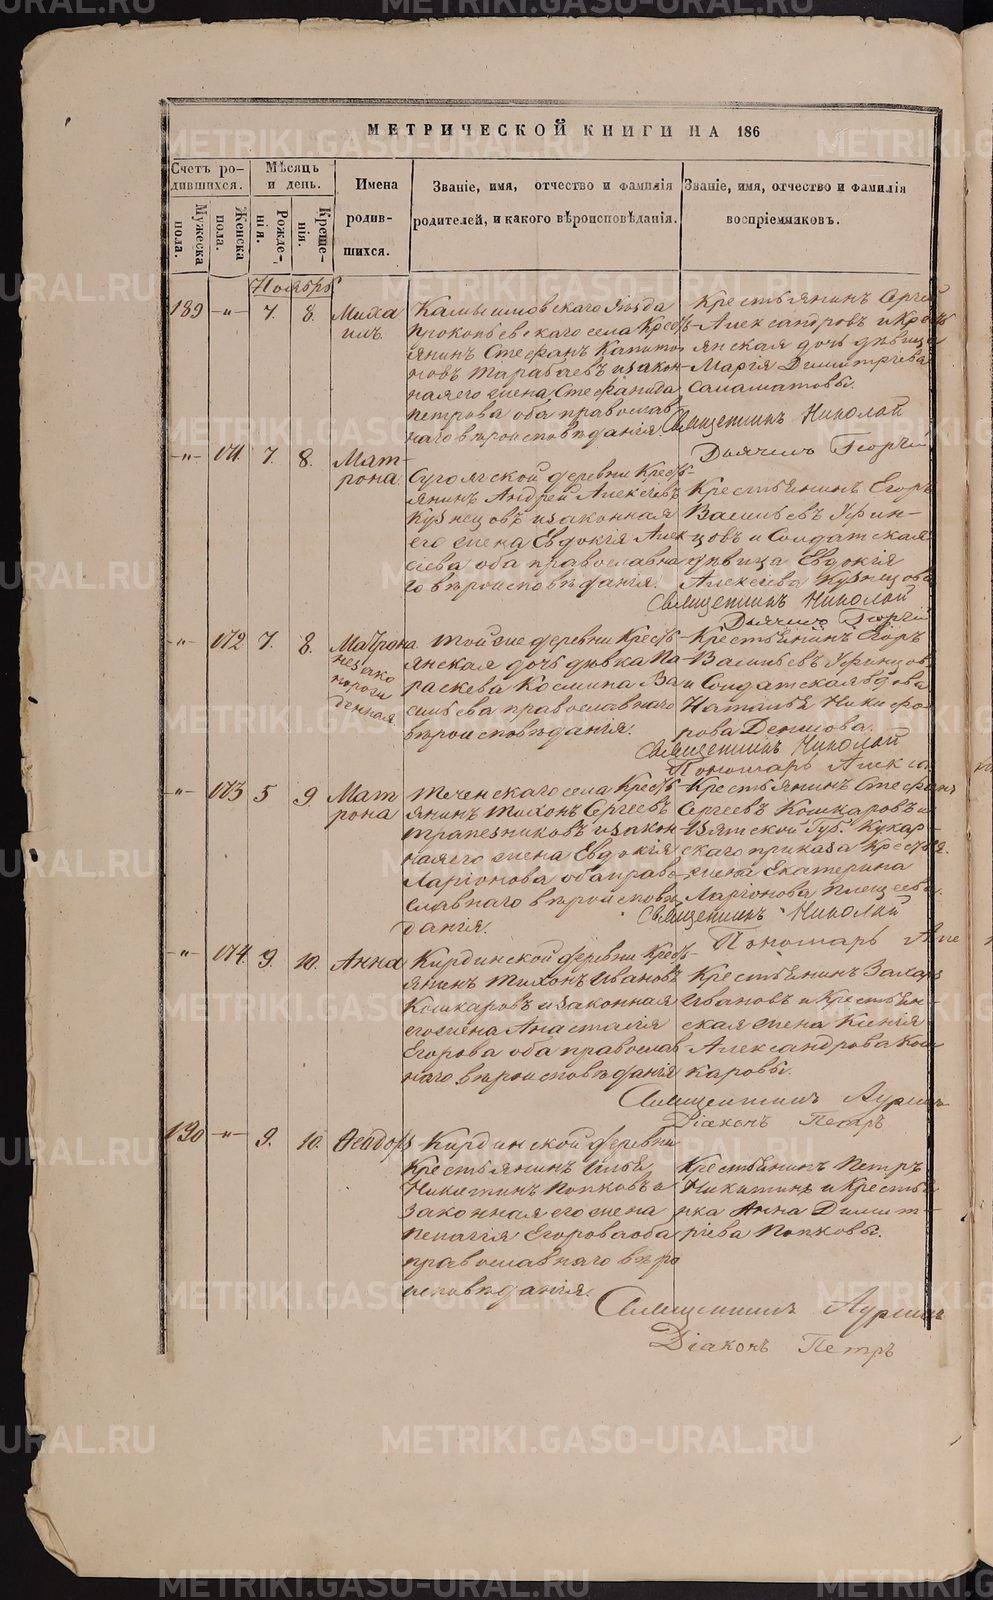 МЕТРИЧЕСКОЙ КНИГИ НА 186
Счетъ ро-
дившихся.
Мужеска
пола.
Женска
пола.
Мѣсяцъ
и день.
Рожде-
нія.
Креще-
нія.
Имена
родив-
шихся.
Званіе, имя, отчество и фамилія
родителей, и какого вѣроисповѣданія.
Званіе, имя, отчество и фамилія
воспріемниковъ.
Ноябрь
189 -"- 7. 8. Миха
илъ.
Камышловскаго Уѣзда
Прокопьевскаго села Крест-
янинъ Стефанъ Капито
новъ Тарабаевъ и закон
ная его жена Стефанида
Петрова оба православ
наго вѣроисповѣданія.
Крестьянинъ Сергей
Александровъ и Крест
янская дочь дѣвица
Марія Димитріева
Саламатовы.
Священникъ Николай
Дьячекъ Георгій
-"- 171. 7. 8. Мат-
рона.
Сугоякской деревни Крест-
янинъ Андрей Алексѣевъ
Кузнецовъ и законная
его жена Евдокія Алек
сѣева оба православна
го вѣроисповѣданія.
Крестьянинъ Егоръ
Васильевъ Уфин-
цовъ и Солдатская
дѣвица Евдокія
Алексѣева Кузнецова
Священникъ Николай
Дьячекъ Георгій
-"- 172 7. 8. Матрона
незако
норож
денная
Той же деревни Крест-
янская дочь дѣвка Па
раскева Космина Ва
сильева православнаго
вѣроисповѣданія.
Крестьянинъ Егоръ
Васильевъ Уфинцов
и Солдатская вдова
Наталья Никифо
рова Денисова.
Священникъ Николай
Пономарь Алекса
-"- 173 5 9 Мат
рона
Теченскаго села Крест-
янинъ Тихонъ Сергеевъ
Трапезниковъ и закон
ная его жена Евдокія
Ларіонова оба право
славнаго вѣроисповѣ
данія.
Крестьянинъ Стефанъ
Сергеевъ Кошкаровъ и
Вятской Губ. Кукар-
скаго приказа Крестья.
жена Екатерина
Ларіонова Плещеева.
Священникъ Николай
Пономарь Але
-"- 174. 9. 10. Анна
Кирдинской деревни Крест-
янинъ Тихонъ Ивановъ
Кошкаровъ и законная
его жена Анастасія
Егорова оба православ
наго вѣроисповѣданія
Крестьянинъ Захаръ
Ивановъ и Крестьян-
ская жена Ксенія
Александрова Кош
каровы.
Священникъ
Діаконъ Петръ
190 -"- 9. 10. Ѳеодоръ
Кирдинской деревни
Крестьянинъ Илья
Никитинъ Попковъ и
законная его жена
Пелагія Егорова оба
православнаго вѣро
исповѣданія.
Крестьянинъ Петръ
Никитинъ и Крестья
нка Анна Димит-
ріева Попковы.
Священникъ
Діаконъ Петръ